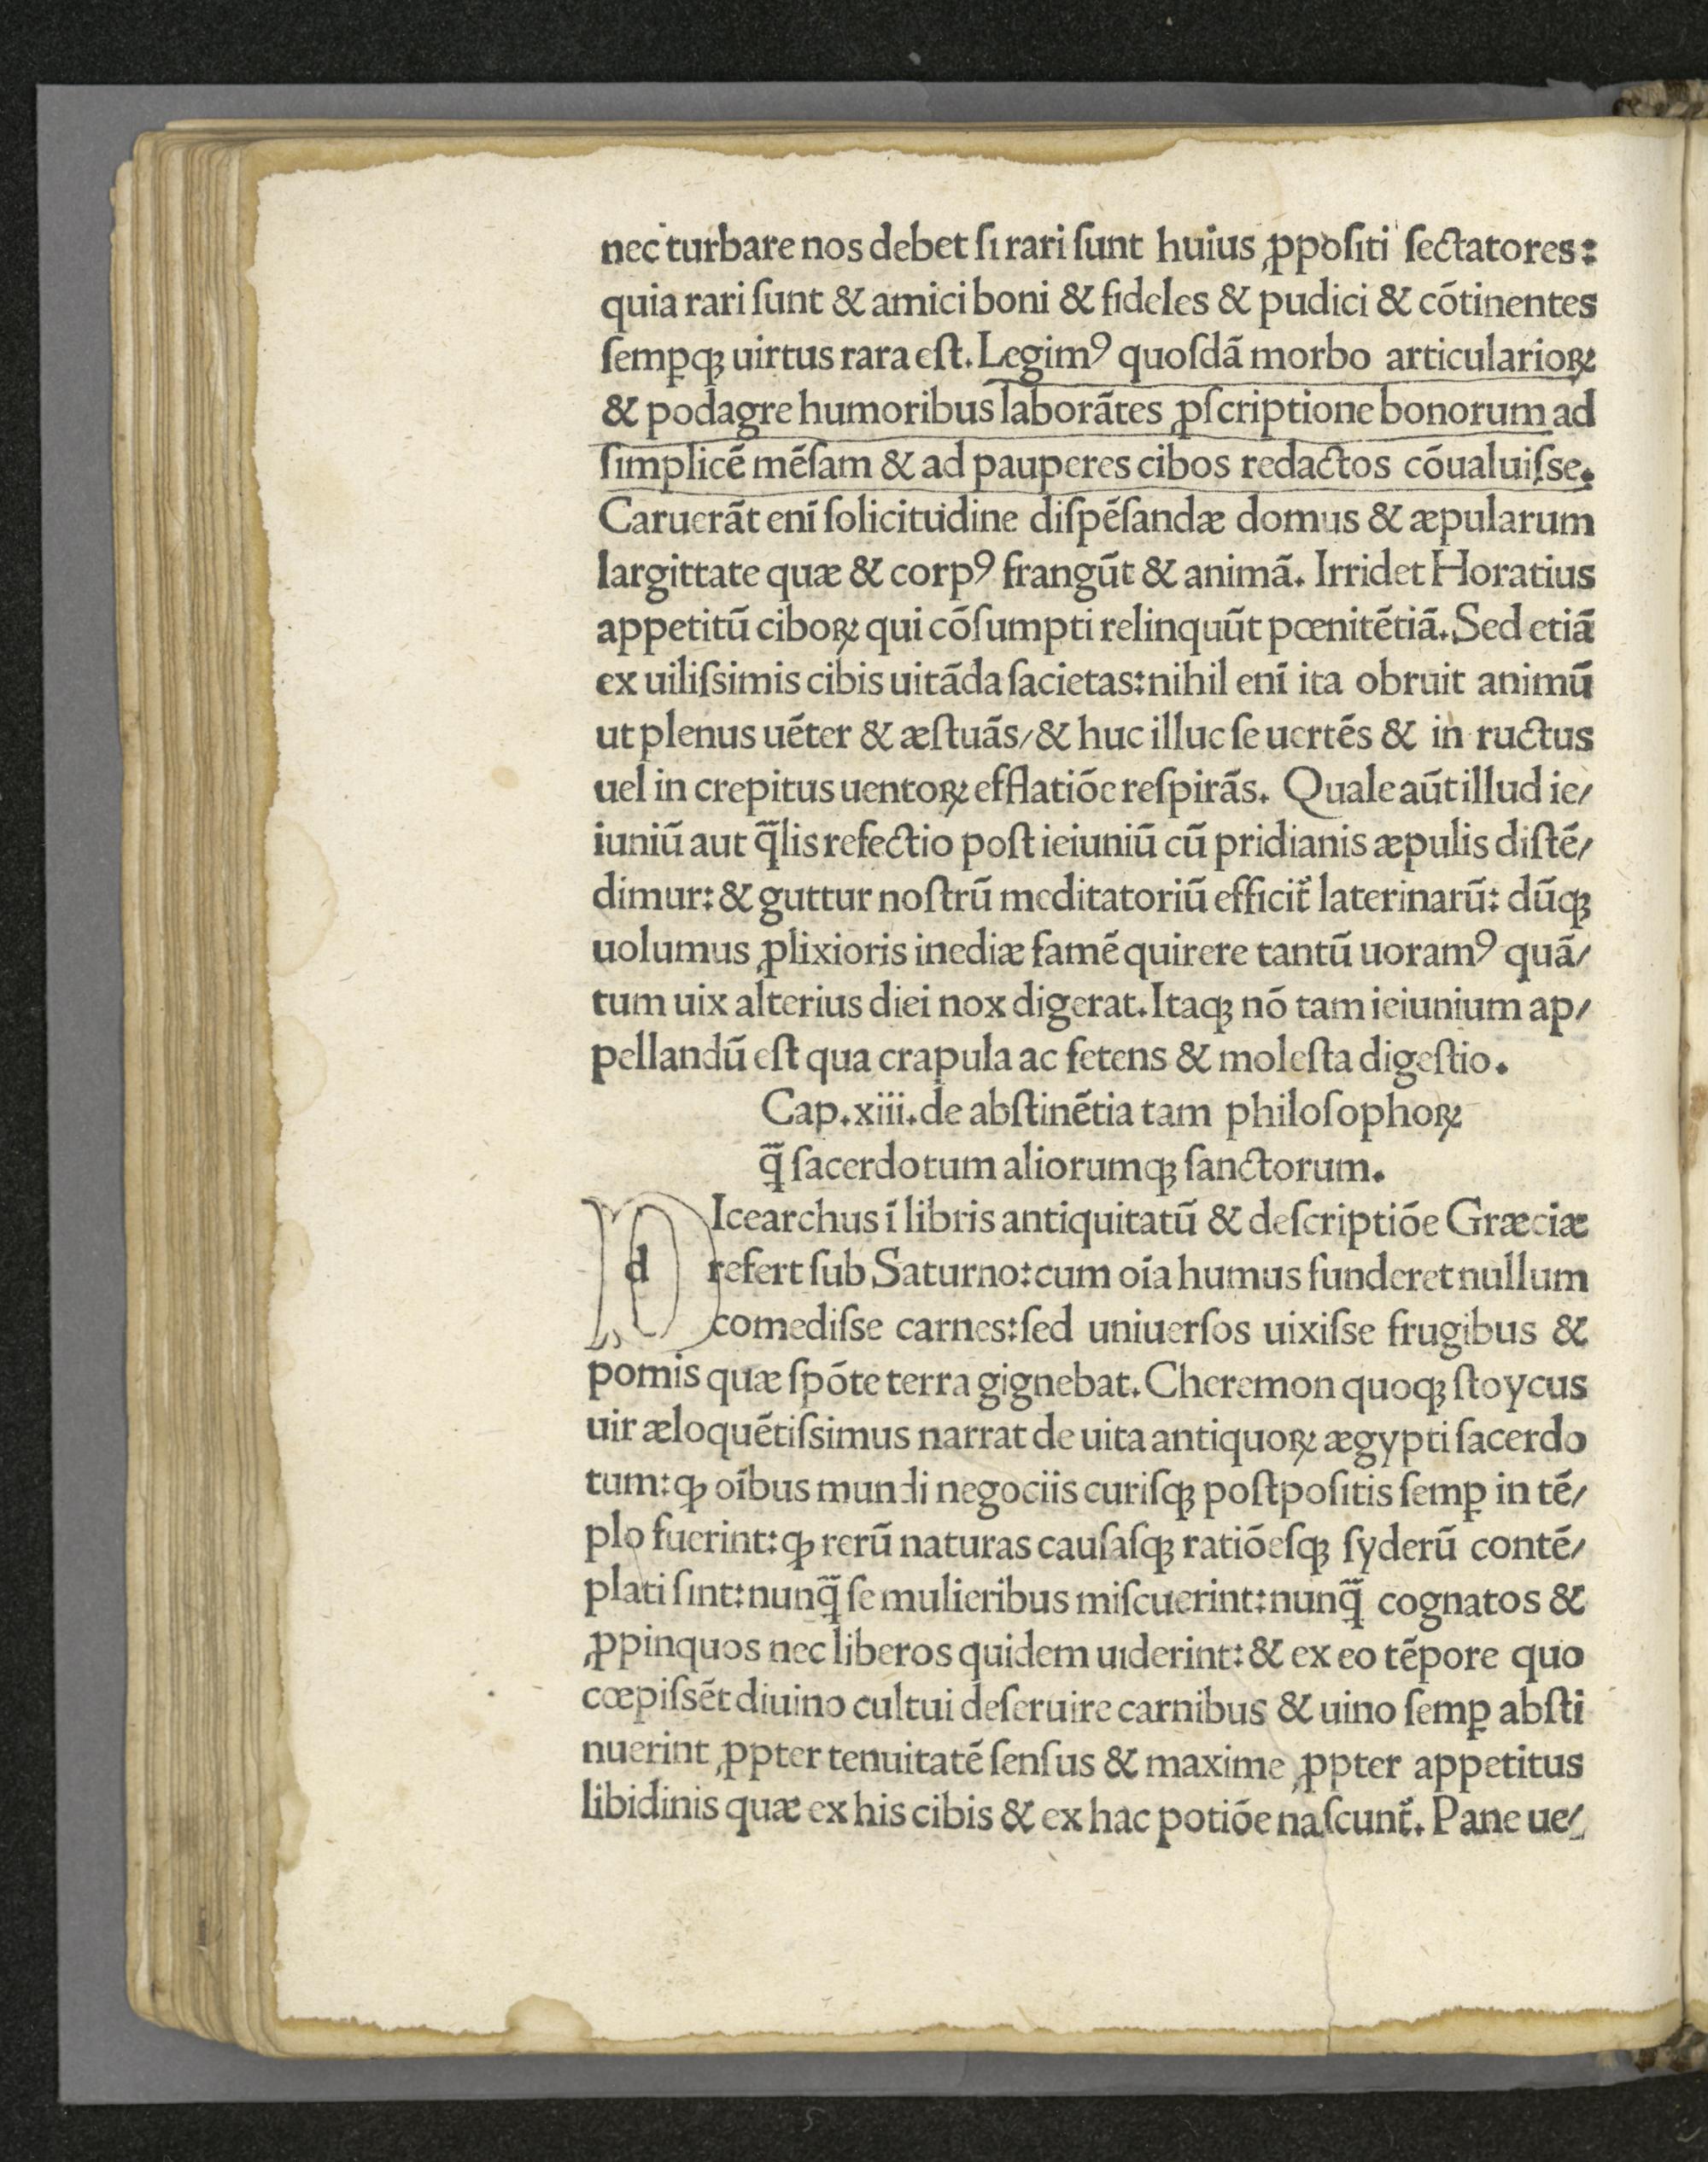 nec turbare nos debet ſi rari ſunt huius ꝓpoſiti ſectatores:
quia rari ſunt & amici boni & fideles & pudici & cõtinentes
ſemꝑqꝫ uirtus rara eſt. Legimꝰ quoſdã morbo articularioꝝ
& podagre humoribus laborãtes ꝓſcriptione bonorum ad
ſimplicẽ mẽſam & ad pauperes cibos redactos cõualuiſse.
Caruerãt enĩ ſolicitudine diſpẽſandæ domus & æpularum
largittate quæ & corpꝰ frangũt & animã. Irridet Horatius
appetitũ ciboꝝ qui cõſumpti relinquũt pœnitẽtiã. Sed etiã
ex uiliſsimis cibis uitãda ſacietas: nihil enĩ ita obruit animũ
ut plenus uẽter & æſtuãs/& huc illuc ſe uertẽs & in ructus
uel in crepitus uentoꝝ efflatiõe reſpirãs. Quale aũt illud ie/
iuniũ aut q̃lis refectio poſt ieiuniũ cũ pridianis æpulis diſtẽ/
dimur: & guttur noſtrũ meditatoriũ efficit̃ laterinarũ: dũqꝫ
uolumus ꝓlixioris inediæ famẽ quirere tantũ uoramꝰ quã/
tum uix alterius diei nox digerat. Itaqꝫ nõ tam ieiunium ap/
pellandũ eſt qua crapula ac fetens & moleſta digeſtio.
Cap. xiii. de abſtinẽtia tam philoſophoꝝ
q̃ ſacerdotum aliorumqꝫ ſanctorum.
dIcearchus ĩ libris antiquitatũ & deſcriptiõe Græciæ
refert ſub Saturno: cum oĩa humus funderet nullum
comediſse carnes: ſed uniuerſos uixiſse frugibus &
pomis quæ ſpõte terra gignebat. Cheremon quoqꝫ ſtoycus
uir æloquẽtiſsimus narrat de uita antiquoꝝ ægypti ſacerdo
tum: ꝙ oĩbus mundi negociis curiſqꝫ poſtpoſitis ſemꝑ in tẽ/
plo fuerint: ꝙ rerũ naturas cauſaſqꝫ ratiõeſqꝫ ſyderũ contẽ/
plati ſint: nunq̃ ſe mulieribus miſcuerint: nunq̃ cognatos &
ꝓpinquos nec liberos quidem uiderint: & ex eo tẽpore quo
cœpiſsẽt diuino cultui deſeruire carnibus & uino ſemꝑ abſti
nuerint ꝓpter tenuitatẽ ſenſus & maxime ꝓpter appetitus
libidinis quæ ex his cibis & ex hac potiõe naſcunt̃. Pane ue/